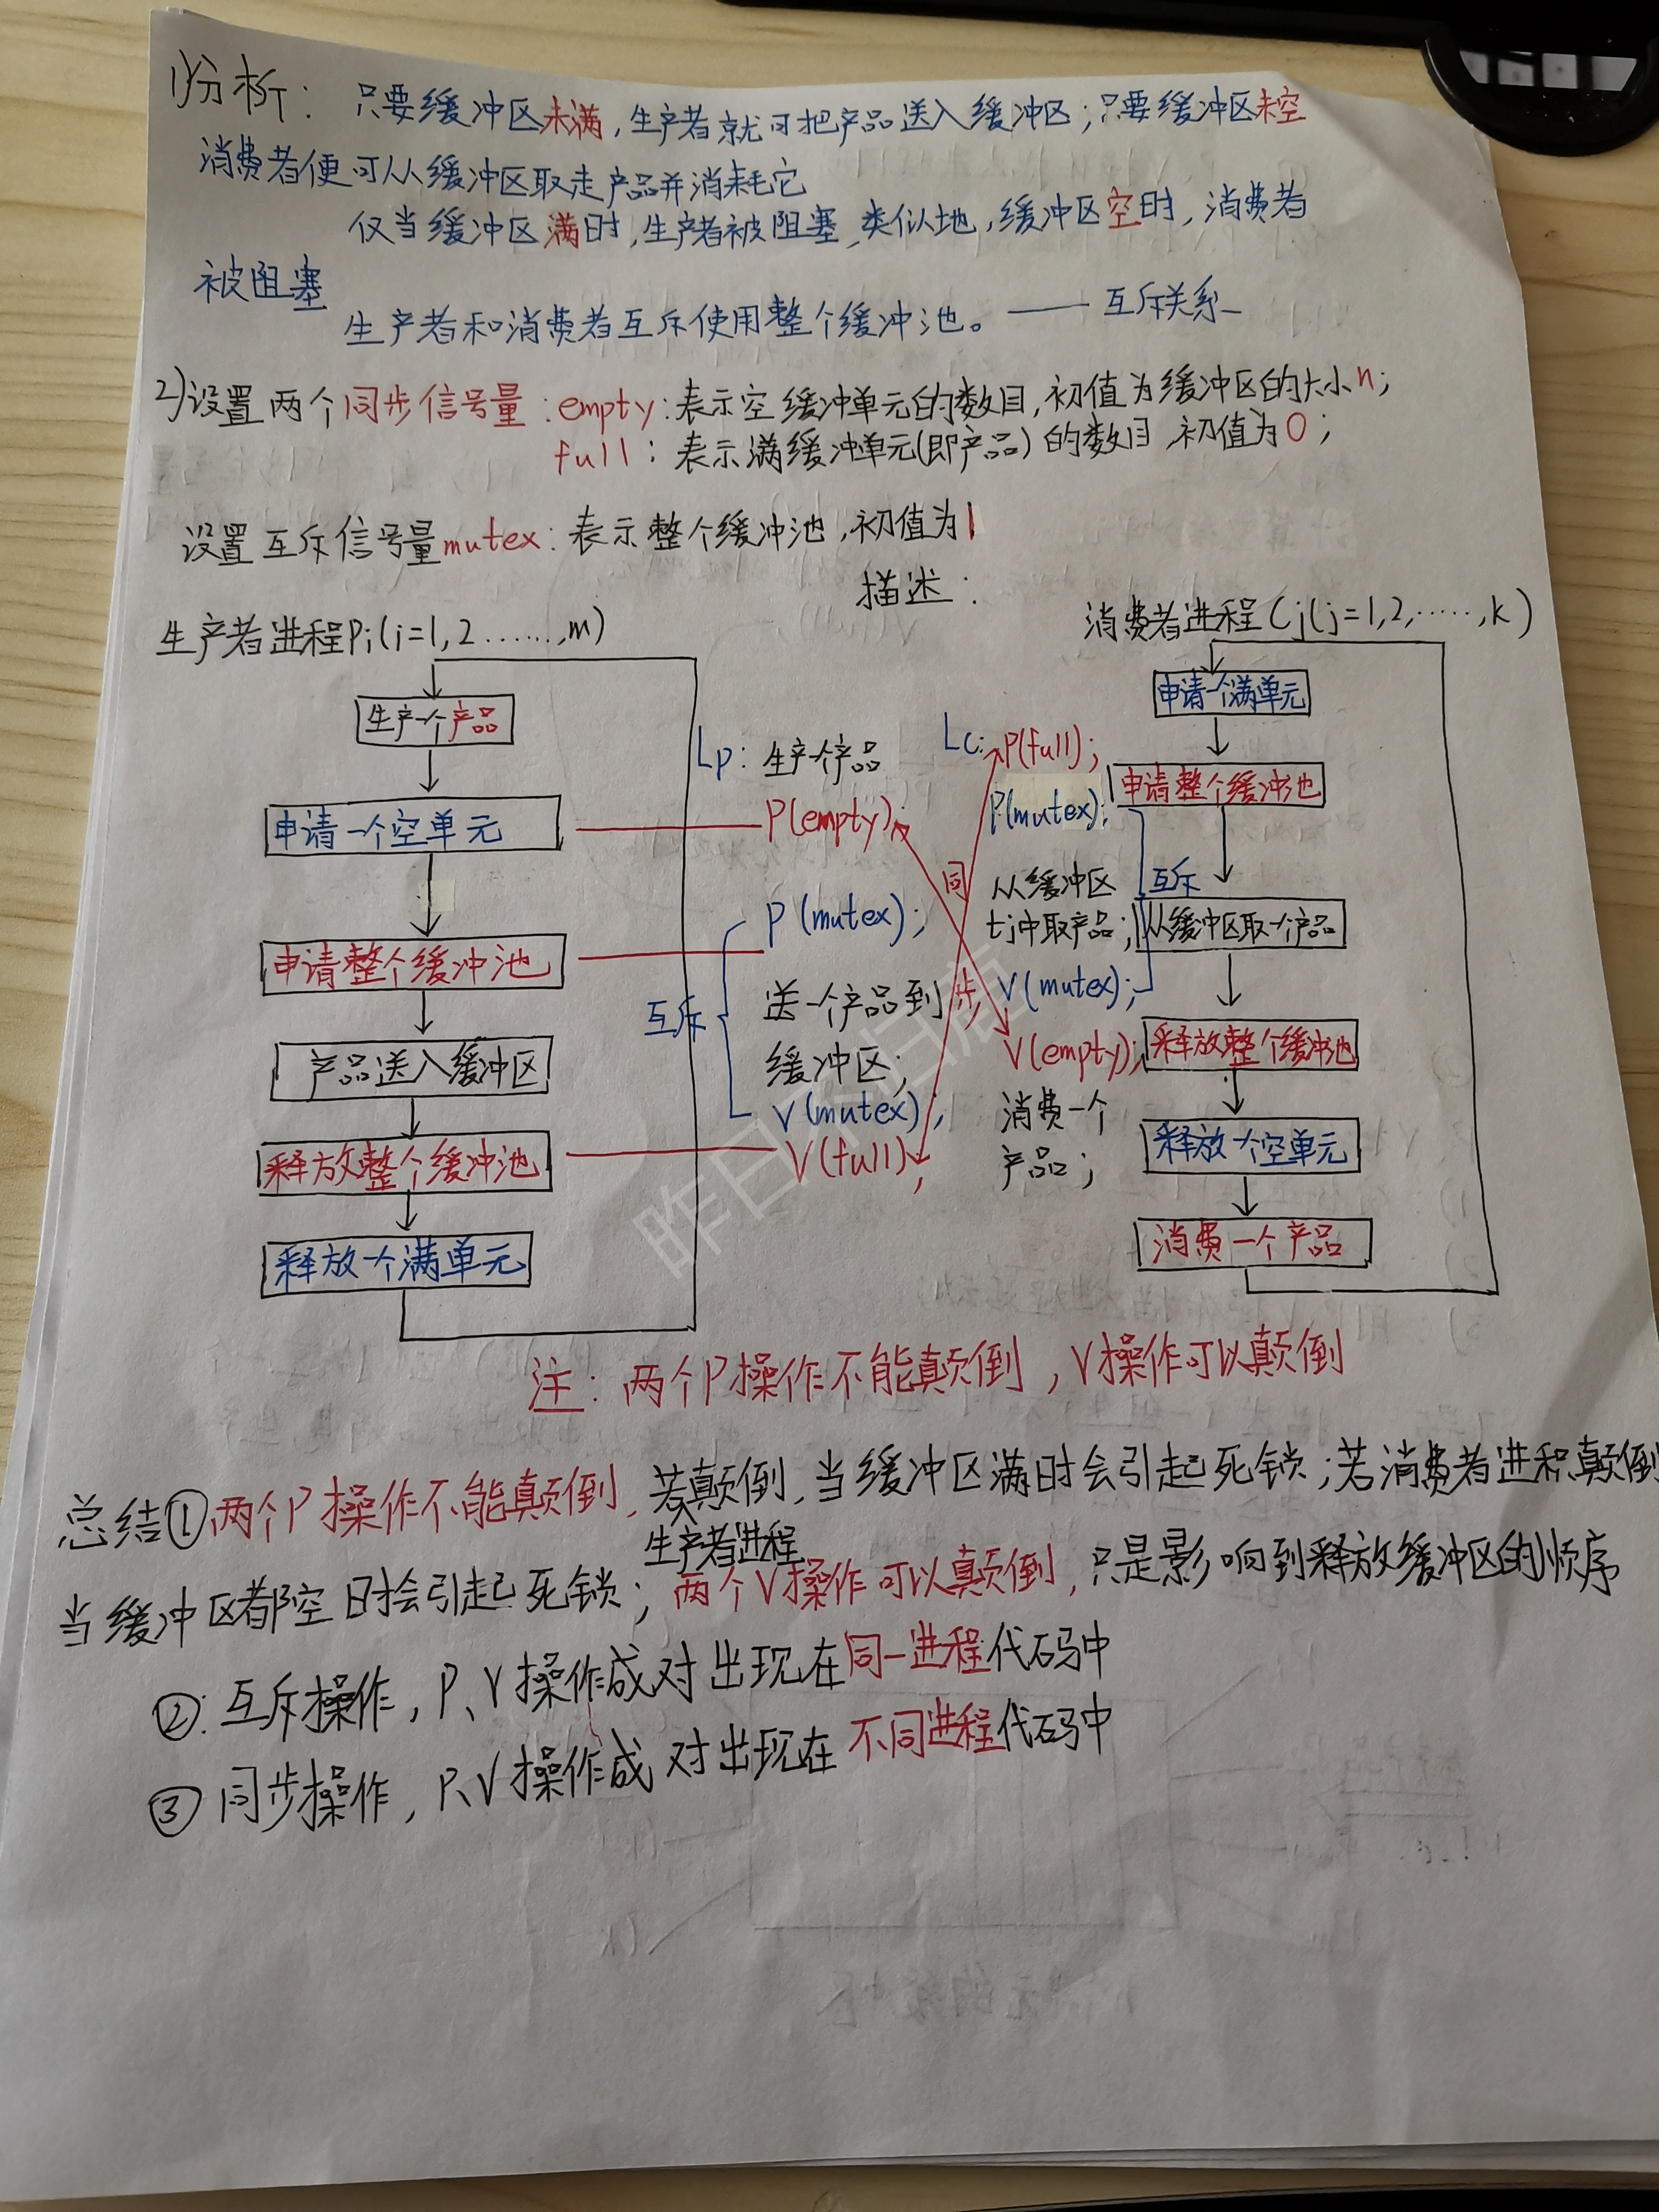 1)分析：只要缓冲区未满，生产者就可把产品送入缓冲区；只要缓冲区未空
消费者便可从缓冲区取走产品并消耗它
仅当缓冲区满时，生产者被阻塞，类似地，缓冲区空时，消费者
被阻塞
生产者和消费者互斥使用整个缓冲池。——互斥关系
2)设置两个同步信号量：empty：表示空缓冲单元的数目，初值为缓冲区的大小n；
full：表示满缓冲单元(即产品)的数目，初值为0；
设置互斥信号量mutex：表示整个缓冲池，初值为1
描述：
生产者进程Pi(i=1,2……,m)
生产一个产品
申请一个空单元
申请整个缓冲池
产品送入缓冲区
释放整个缓冲池
释放一个满单元
Lp：生产一个产品
P(empty);
P(mutex);
送一个产品到
缓冲区；
V(mutex);
V(full);
互斥
同步
消费者进程Cj(j=1,2,……,k)
Lc：P(full);
P(mutex);
从缓冲区
tj中取产品；
V(mutex);
V(empty);
消费一个
产品；
互斥
申请一个满单元
申请整个缓冲池
从缓冲区取一个产品
释放整个缓冲池
释放一个空单元
消费一个产品
注：两个P操作不能颠倒，V操作可以颠倒
总结①两个P操作不能颠倒，若颠倒，当缓冲区满时会引起死锁；若消费者进程颠倒
生产者进程
当缓冲区都空时会引起死锁；两个V操作可以颠倒，只是影响到释放缓冲区的顺序
②：互斥操作，P、V操作成对出现在同一进程代码中
③同步操作，P、V操作成对出现在不同进程代码中